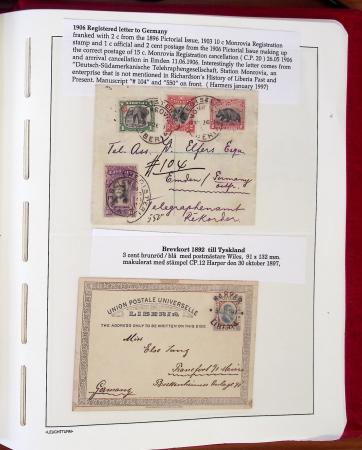 1906 Registered letter to Germany
franked with 2 c from the 1896 Pictorial Issue, 1903 10 c Monrovia Registration
stamp and 1 c official and 2 cent postage from the 1906 Pictorial Issue making up
the correct postage of 15 c. Monrovia Registration cancellation ( C.P. 20 ) 26.05 1906
and arrrival cancellation in Emden 11.06.1906. Interestingly the letter comes from
"Deutsch-Südamerikanische Telehraphengesellschaft, Station Monrovia, an
enterprise that is not mentioned in Richardson's History of Liberia Past and
Present. Manuscript "# 104" and "550" on front. ( Harmers january 1997)
Tel. Ass. A. Elfers Esqu
#104
Emden / Germany
Telegraphenamt
Rekorder.
Brevkort 1892 till Tyskland
3 cent brunröd / blå med postmästare Wiles, 91 x 132 mm.
makulerat med stämpel CP.12 Harper den 30 oktober 1897,
HARPER
LIBERIA
UNION POSTALE UNIVERSELLE
LIBERIA
THE ADDRESS ONLY TO BE WRITTEN ON THIS SIDE
Miss
Else Jung
Germany
LEUCHTTURM